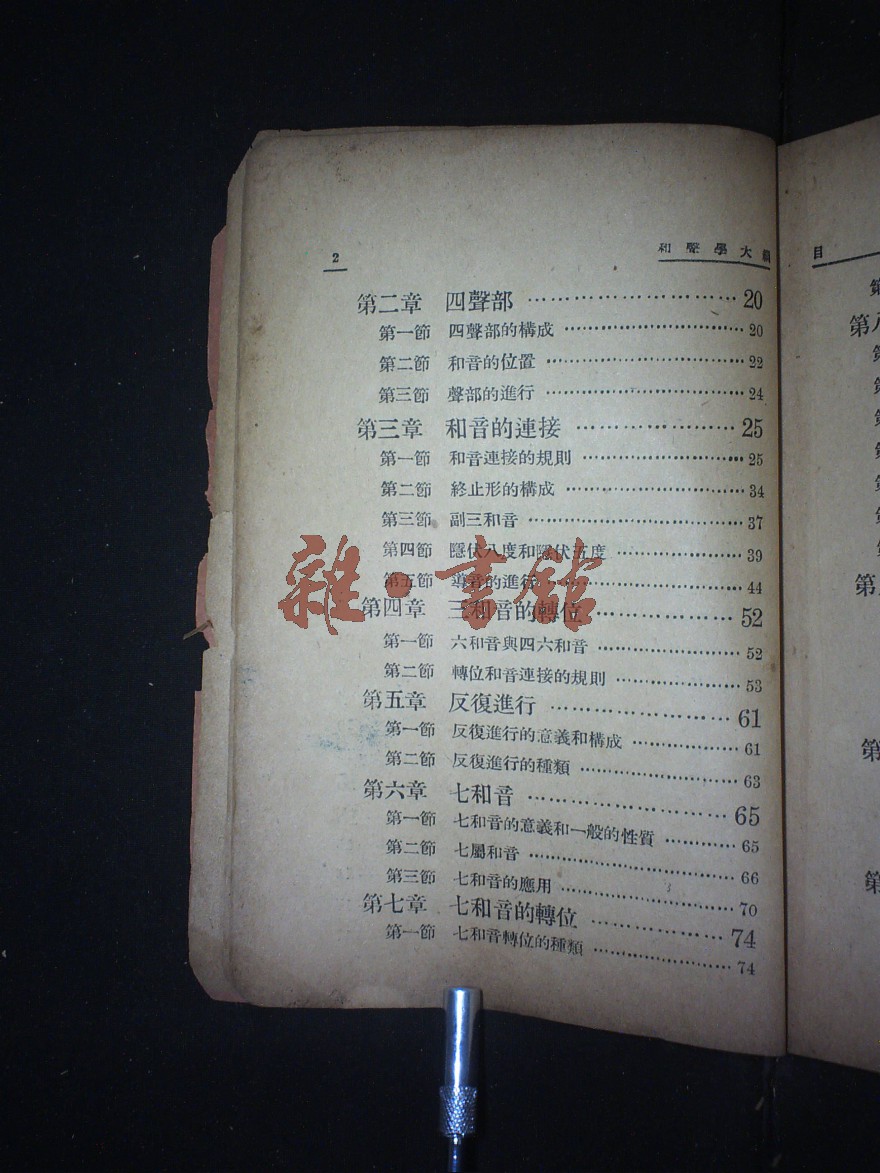 2
和聲學大綱
第二章 四聲部 ……………………… 20
第一節 四聲部的構成 ……………………… 20
第二節 和音的位置 ……………………… 22
第三節 聲部的進行 ……………………… 24
第三章 和音的連接 ……………………… 25
第一節 和音連接的規則 ……………………… 25
第二節 終止形的構成 ……………………… 34
第三節 副三和音 ……………………… 37
第四節 隱伏八度和隱伏五度 ……………………… 39
第五節 導音的進行 ……………………… 44
第四章 三和音的轉位 ……………………… 52
第一節 六和音與四六和音 ……………………… 52
第二節 轉位和音連接的規則 ……………………… 53
第五章 反復進行 ……………………… 61
第一節 反復進行的意義和構成 ……………………… 61
第二節 反復進行的種類 ……………………… 63
第六章 七和音 ……………………… 65
第一節 七和音的意義和一般的性質 ……………………… 65
第二節 七屬和音 ……………………… 66
第三節 七和音的應用 ……………………… 70
第七章 七和音的轉位 ……………………… 74
第一節 七和音轉位的種類 ……………………… 74
雜·書館
目
第八